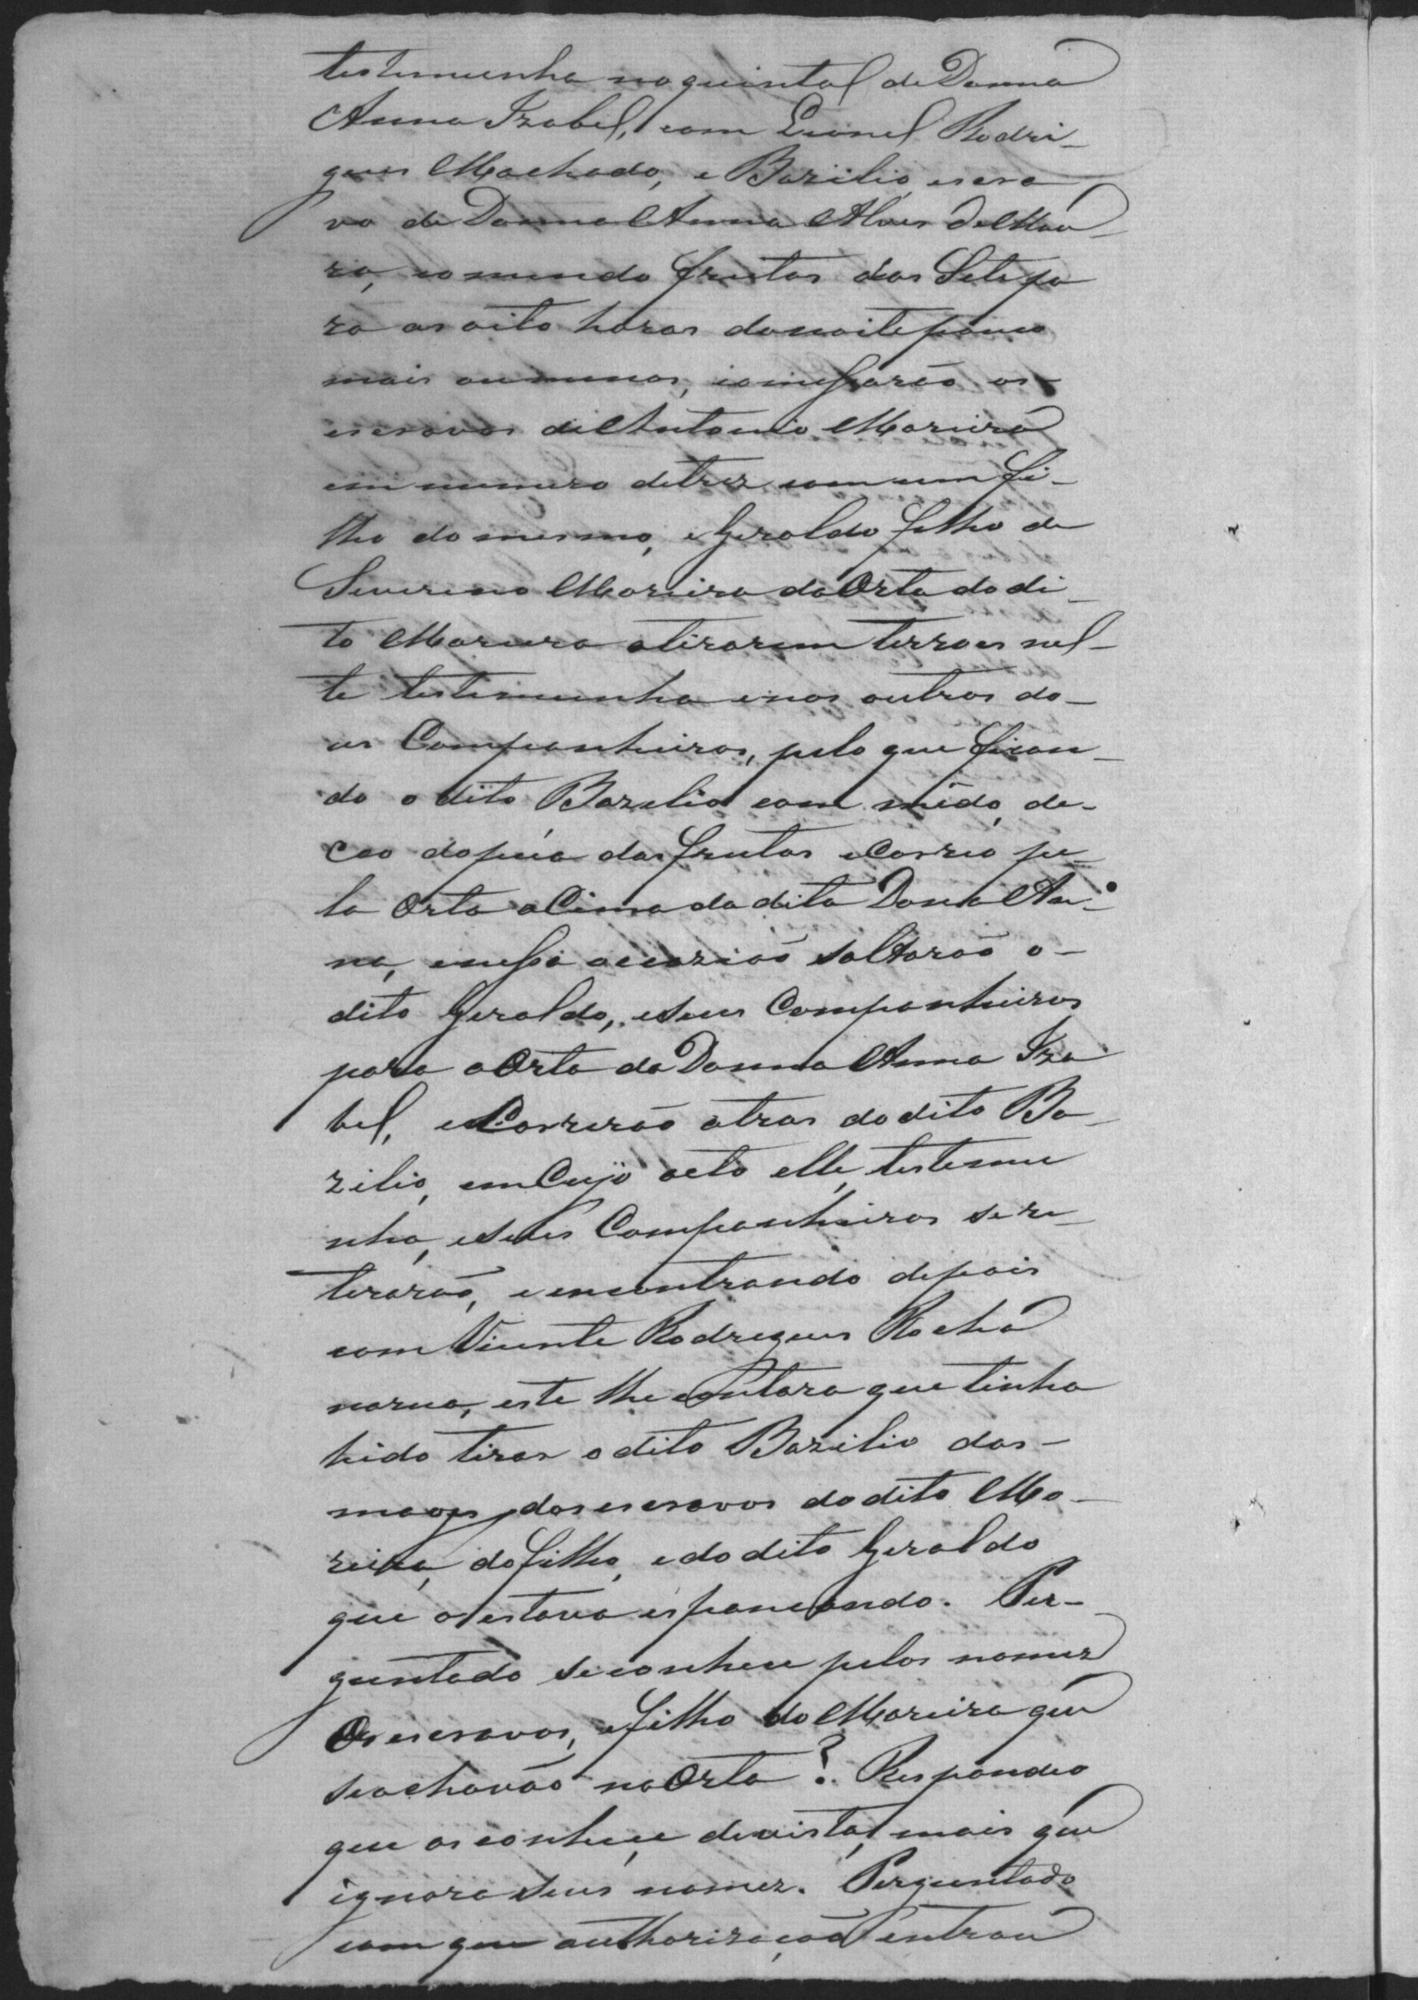 testemunha no quintal de Donna
Anna Izabel, com Lionel Rodri-
gues Machado, e Bazilio, escra
vo de Donna Anna Alves de Mou-
ra, comendo frutas das Sete pa
ra as oito horas da noite pouco
mais ou menos, comessarão os
escravos de Antonio Moreira
em numero de trez com um fi-
lho do mesmo, e Geraldo filho de
Severino Moreira da Orta do di-
to Moreira atirarem terroes nel-
le testemunha e nos outros do-
us Companheiros, pelo que fican-
do o dito Bazilio com mêdo, de-
ceo do pé das frutas e Correo pe-
la Orta a Cima da dita Dona An-
na, e nessa occazião saltarão o-
dito Geraldo, e seus Companheiros
para a Orta da Donna Anna Iza
bel, e Correrão atras do dito Ba-
zilio, em Cujo acto elle, testemu
nha, e seus Companheiros se re-
tirarão, e encontrando depois
com Vicente Rodrigues Rocha
na rua, este lhe contara que tinha
hido tirar o dito Bazilio das-
maos dos escravos do dito Mo-
reira, do filho, e do dito Geraldo
que o estava espancando. Per-
guntado se conhece pelos nomes
Os escravos, e filho do Moreira que
se achavão na Orta? Respondeo
que os conhece de vista, mais que
ignora seus nomes. Perguntado
com que authorização entrou